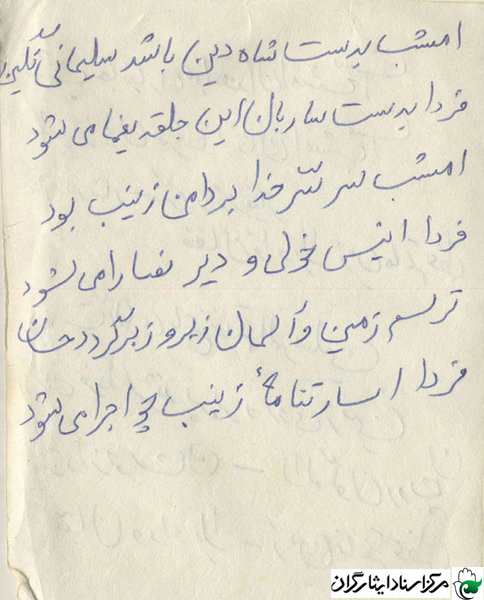 امشب بدست شاه دین باشد سلیمانی نگین
فردا بدست ساربان این حلقه یغما می شود
امشب سر سرّ خدا بر دامن زینب بود
فردا انیس خولی و دیر نصارا می شود
ترسم زمین و آسمان زیر و زبر گردد حسان
فردا اسارتنامهٔ زینب چو اجرا می شود
مرکز اسناد ایثارگران